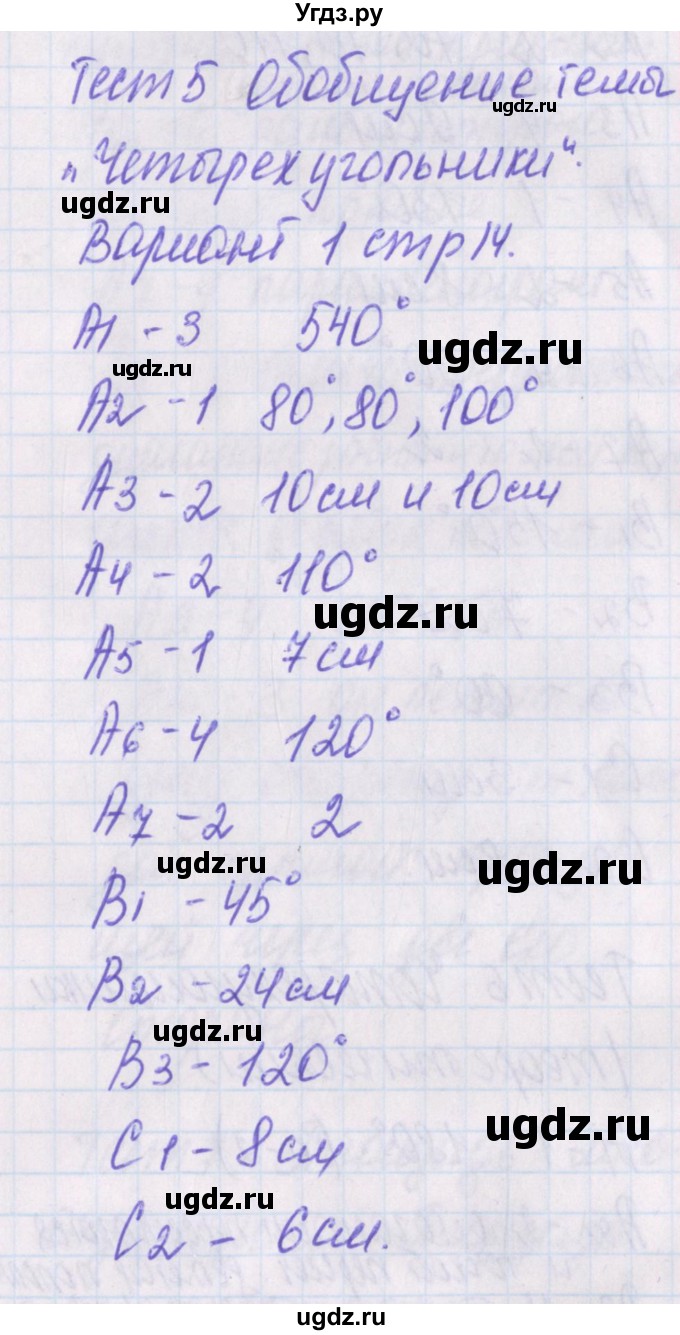 Угдз.ру
Тест 5 Обобщение темы
ugdz.ru
„Четырехугольники“.
ugdz.ru
Вариант 1 стр 14.
А1 - 3 540°
ugdz.ru
ugdz.ru
А2 - 1 80°, 80°, 100°
А3 - 2 10 см и 10 см
А4 - 2 110°
ugdz.ru
А5 - 1 7 см
А6 - 4 120°
А7 - 2 2
ugdz.ru
ugdz.ru
В1 - 45°
В2 - 24 см
ugdz.ru
В3 - 120°
ugdz.ru
С1 - 8 см
ugdz.ru
С2 - 6 см.
ugdz.ru